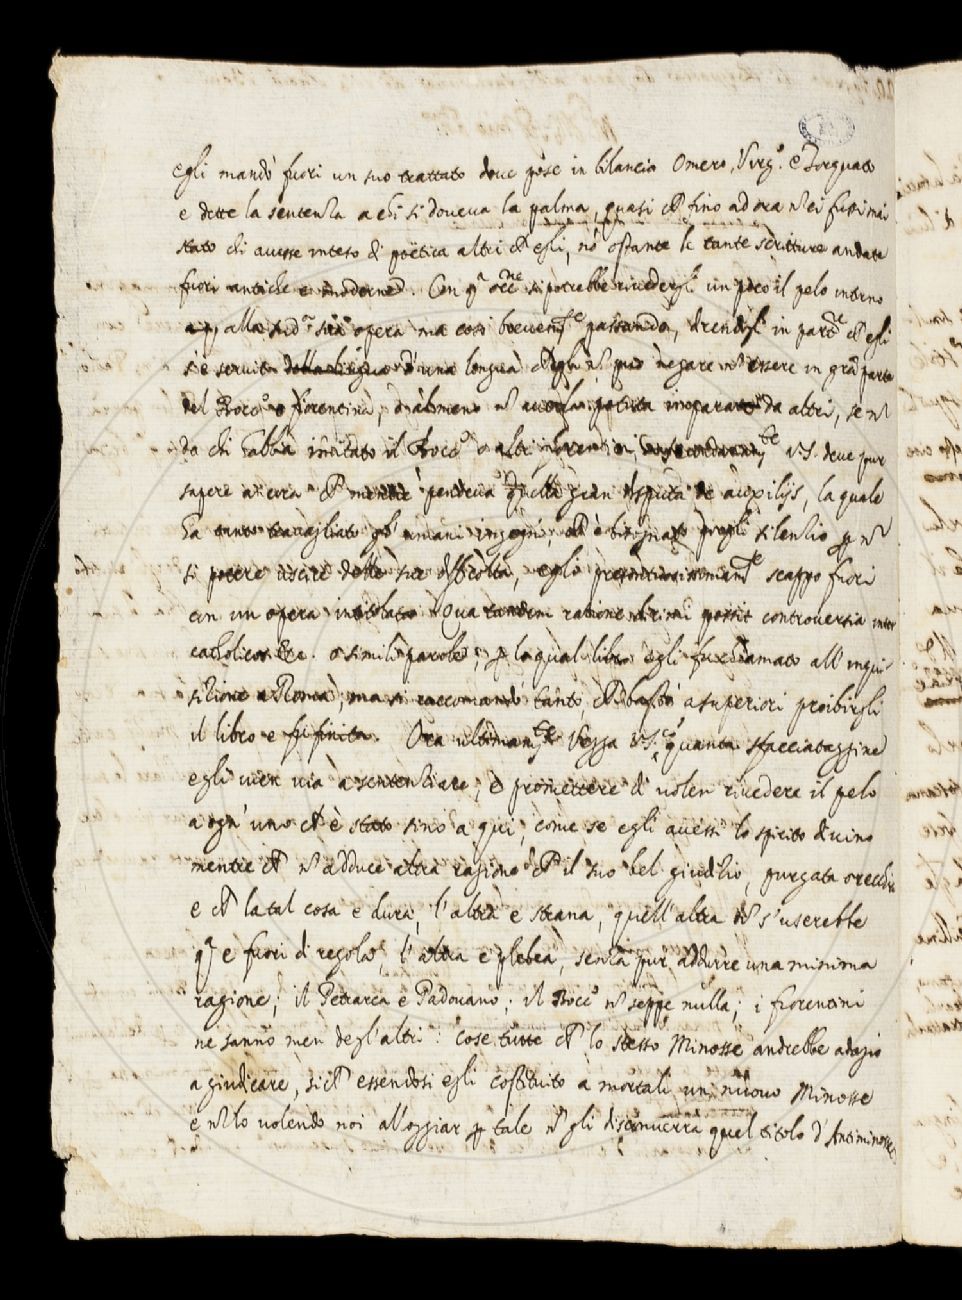 egli mandò fuori un suo trattato doue pose in bilancia Omero, Virg.º e Torquato
e dette la sentenza a chi si doueua la palma, quasi ch fino ad ora nei fussi mai
stato chi auesse inteso di poetica altri ch egli, nõ ostante le tante scritture andate
fuori antiche e moderne. Con qª occne si potrebbe riuedergli un poco il pelo intorno
alla sudª sua opera ma cosi breuemte passando, in parte ch egli
si è seruito d'una longua ch egli nõ può negare nõ essere in grã parte
del Bocc.º o fiorentina, o almeno nõ da altri, se nõ
da chi abbia imitato il Bocc.º o altri fiorentini VS. deue pur
sapere ancora ch mentre pendeua quella gran disputa de auxilijs, la quale
ha tanto trauagliato gl' umani ingegni, ch è bisognato silenzio p nõ
si potere uscire delle sue difficoltà, egli scappo fuori
con un opera intitolata Qua tandem ratione dirimi possit controuersia inter
catolicos &c. o simili parole, p la qual libro egli fu chiamato all' inqui-
sizione a Roma, ma si raccomandò tanto, ch bastò a superiori proibirgli
il libro e fu finita. Ora ultimamte Vegga VS. quanta sfacciataggine
egli uien uia a sentenziare, e promettere di uoler riuedere il pelo
a ogn' uno ch è stato sino a qui, come se egli auessi lo spirito diuino
mentre ch nõ adduce altra ragione ch il suo bel giudizio, purgate orecchie
e ch la tal cosa e dura, l'altra è strana, quell'altra nõ s'userebbe
qª e fuori di regola, l'altra e plebea, senza pur addurre una minima
ragione; il Petrarca e Padouano; il Bocc.º nõ seppe nulla; i fiorentini
ne sanno men degl'altri: Cose tutte ch lo stesso Minosse andrebbe adagio
a giudicare, sich essendosi egli costituito a mortali un nuouo Minosse
e nõ lo uolendo noi alloggiar p tale nõ gli disconuerrà quel titolo d'Antiminosse